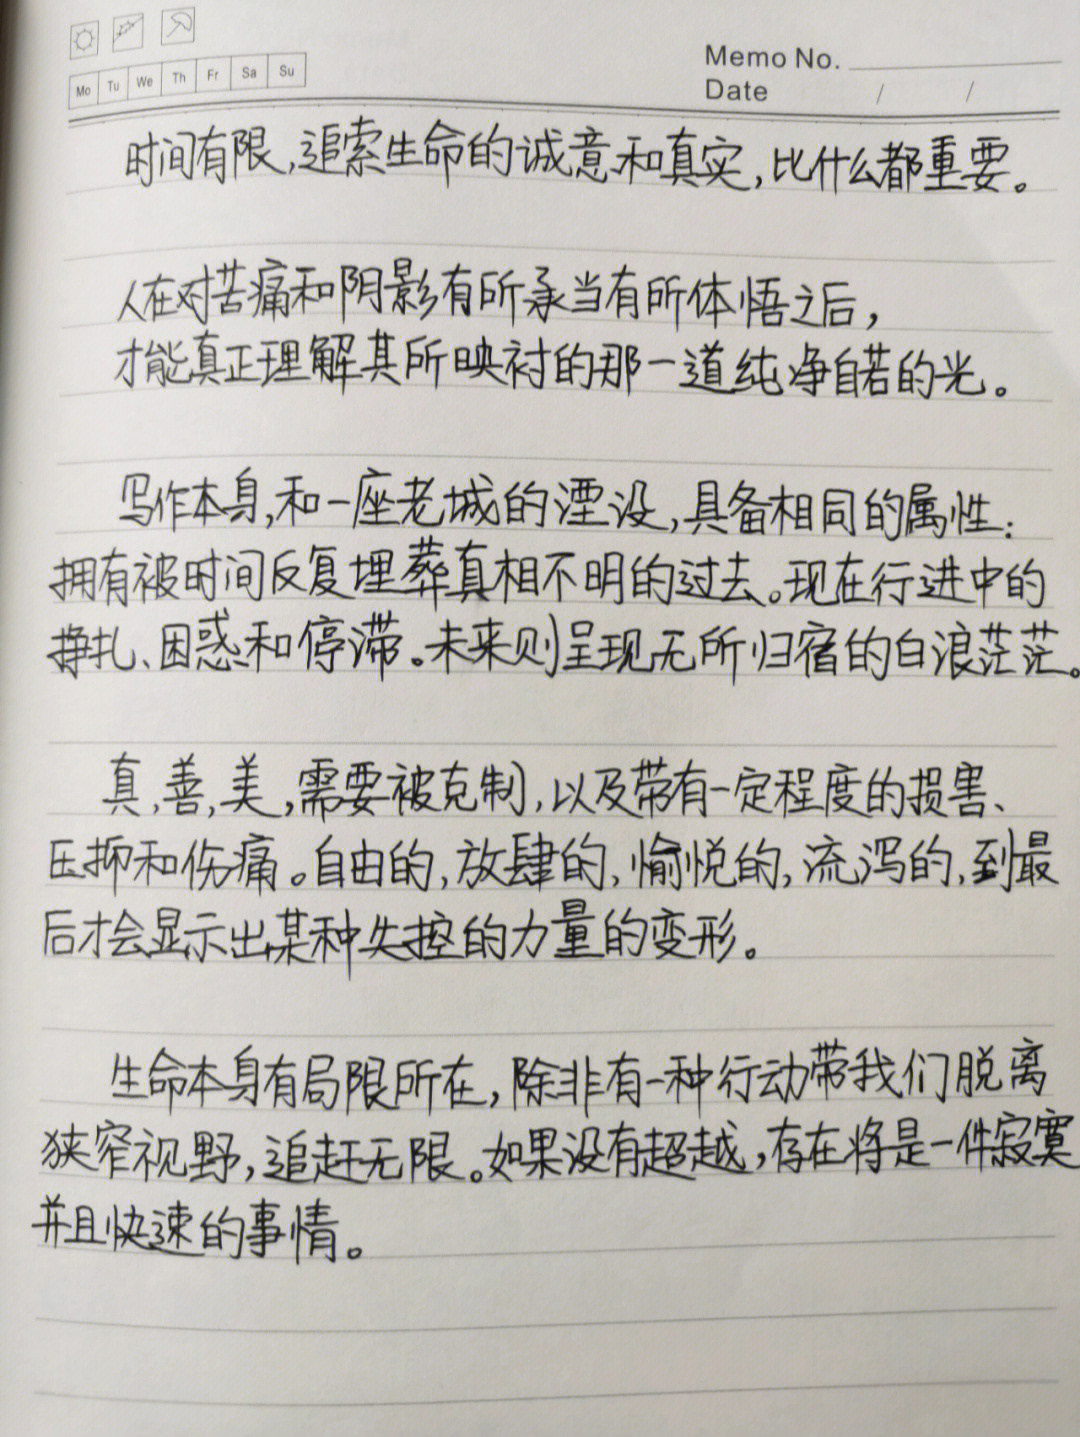 Memo No.
Mo Tu We Th Fr Sa Su
Date / /
时间有限,追索生命的诚意和真实,比什么都重要。
人在对苦痛和阴影有所承当有所体悟之后,
才能真正理解其所映衬的那一道纯净自若的光。
写作本身,和一座老城的湮没,具备相同的属性:
拥有被时间反复埋葬真相不明的过去。现在行进中的
挣扎、困惑和停滞。未来则呈现无所归宿的白浪茫茫。
真,善,美,需要被克制,以及带有一定程度的损害、
压抑和伤痛。自由的,放肆的,愉悦的,流泻的,到最
后才会显示出某种失控的力量的变形。
生命本身有局限所在,除非有一种行动带我们脱离
狭窄视野,追赶无限。如果没有超越,存在将是一件寂寞
并且快速的事情。